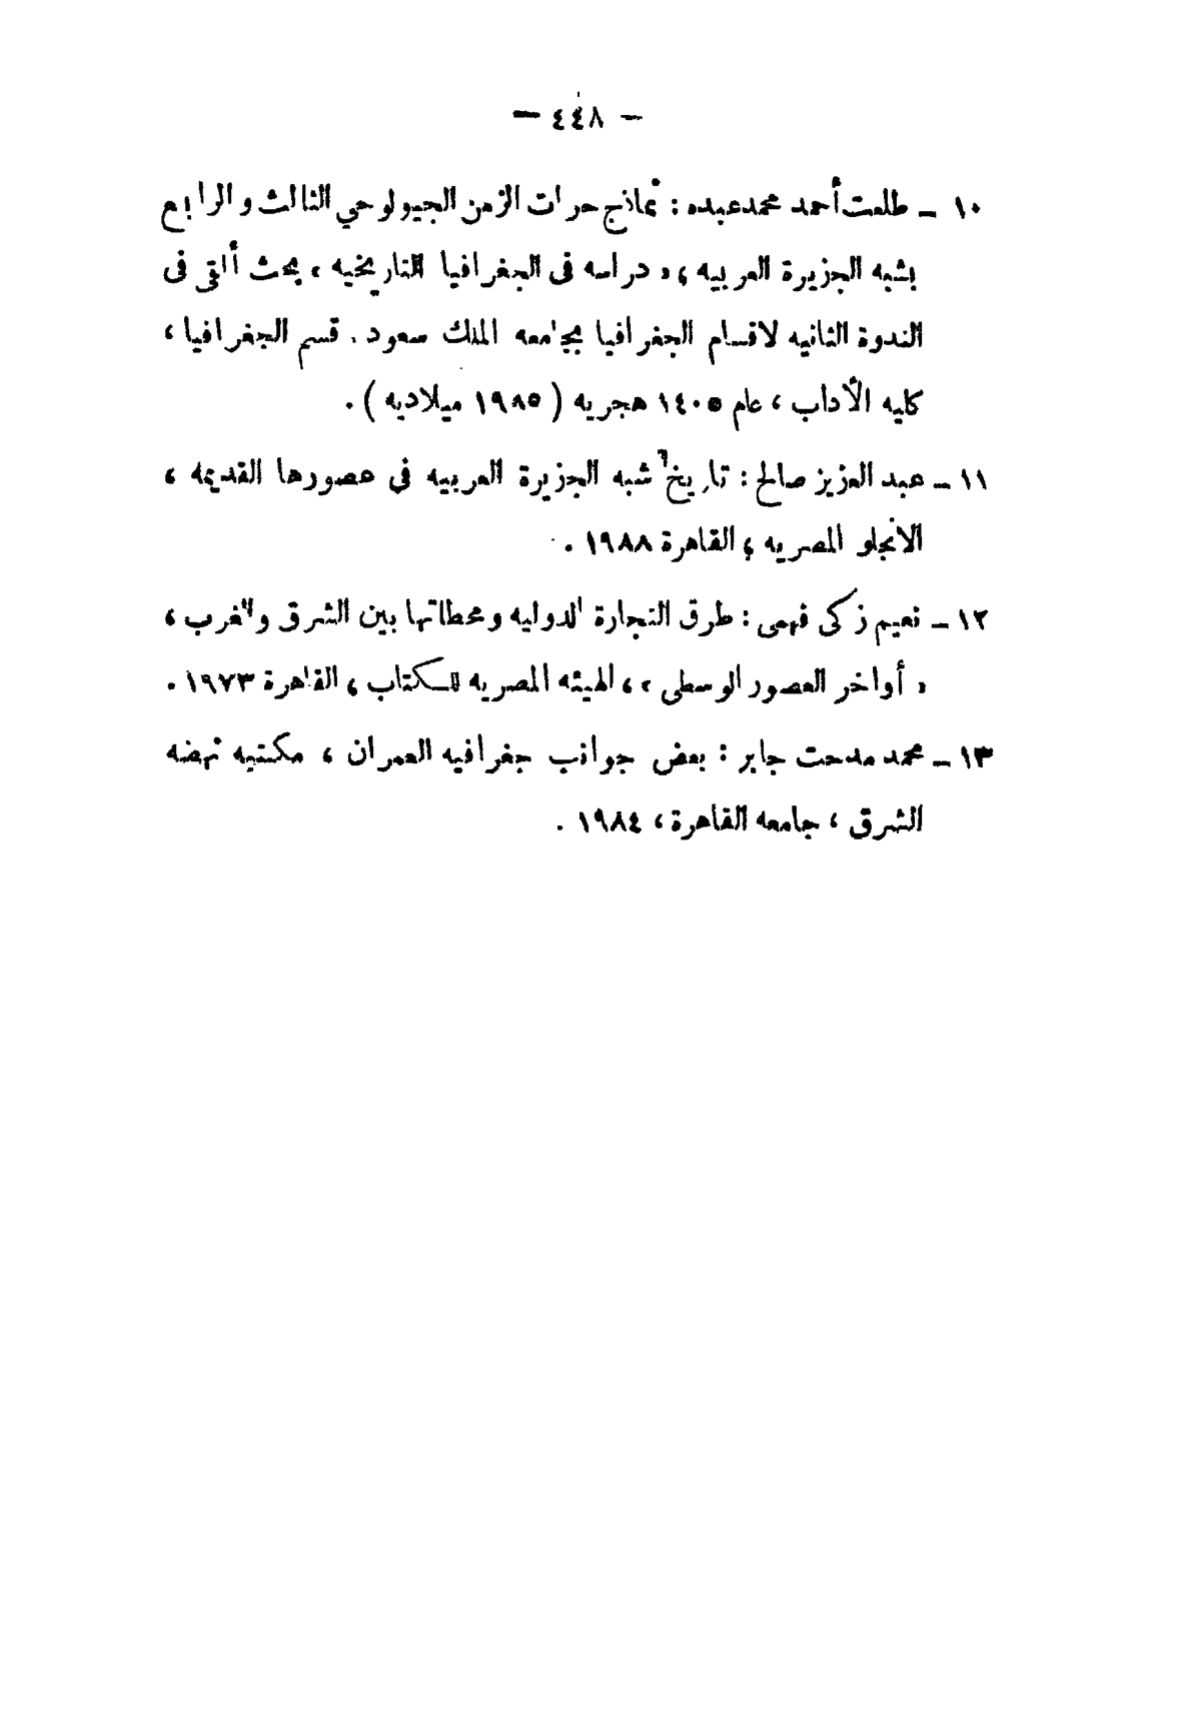 — ٤٤٨ —
١٠ — طلعت أحمد محمد عبده : نماذج حرات الزمن الجيولوجي الثالث والرابع
بشبه الجزيرة العربيه ، « دراسه فى الجغرافيا التاريخيه ، بحث ألقى فى
الندوة الثانيه لاقسام الجغرافيا بجامعه الملك سعود . قسم الجغرافيا ،
كليه الآداب ، عام ١٤٠٥ هجريه ( ١٩٨٥ ميلاديه ) .
١١ — عبد العزيز صالح : تاريخ شبه الجزيرة العربيه في عصورها القديمه ،
الانجلو المصريه ، القاهرة ١٩٨٨ .
١٢ — نعيم زكى فهمى : طرق التجارة الدوليه ومحطاتها بين الشرق والغرب ،
« أواخر العصور الوسطى » ، الهيئه المصريه للكتاب ، القاهرة ١٩٧٣ .
١٣ — محمد مدحت جابر : بعض جوانب جغرافيه العمران ، مكتبه نهضه
الشرق ، جامعه القاهرة ، ١٩٨٤ .